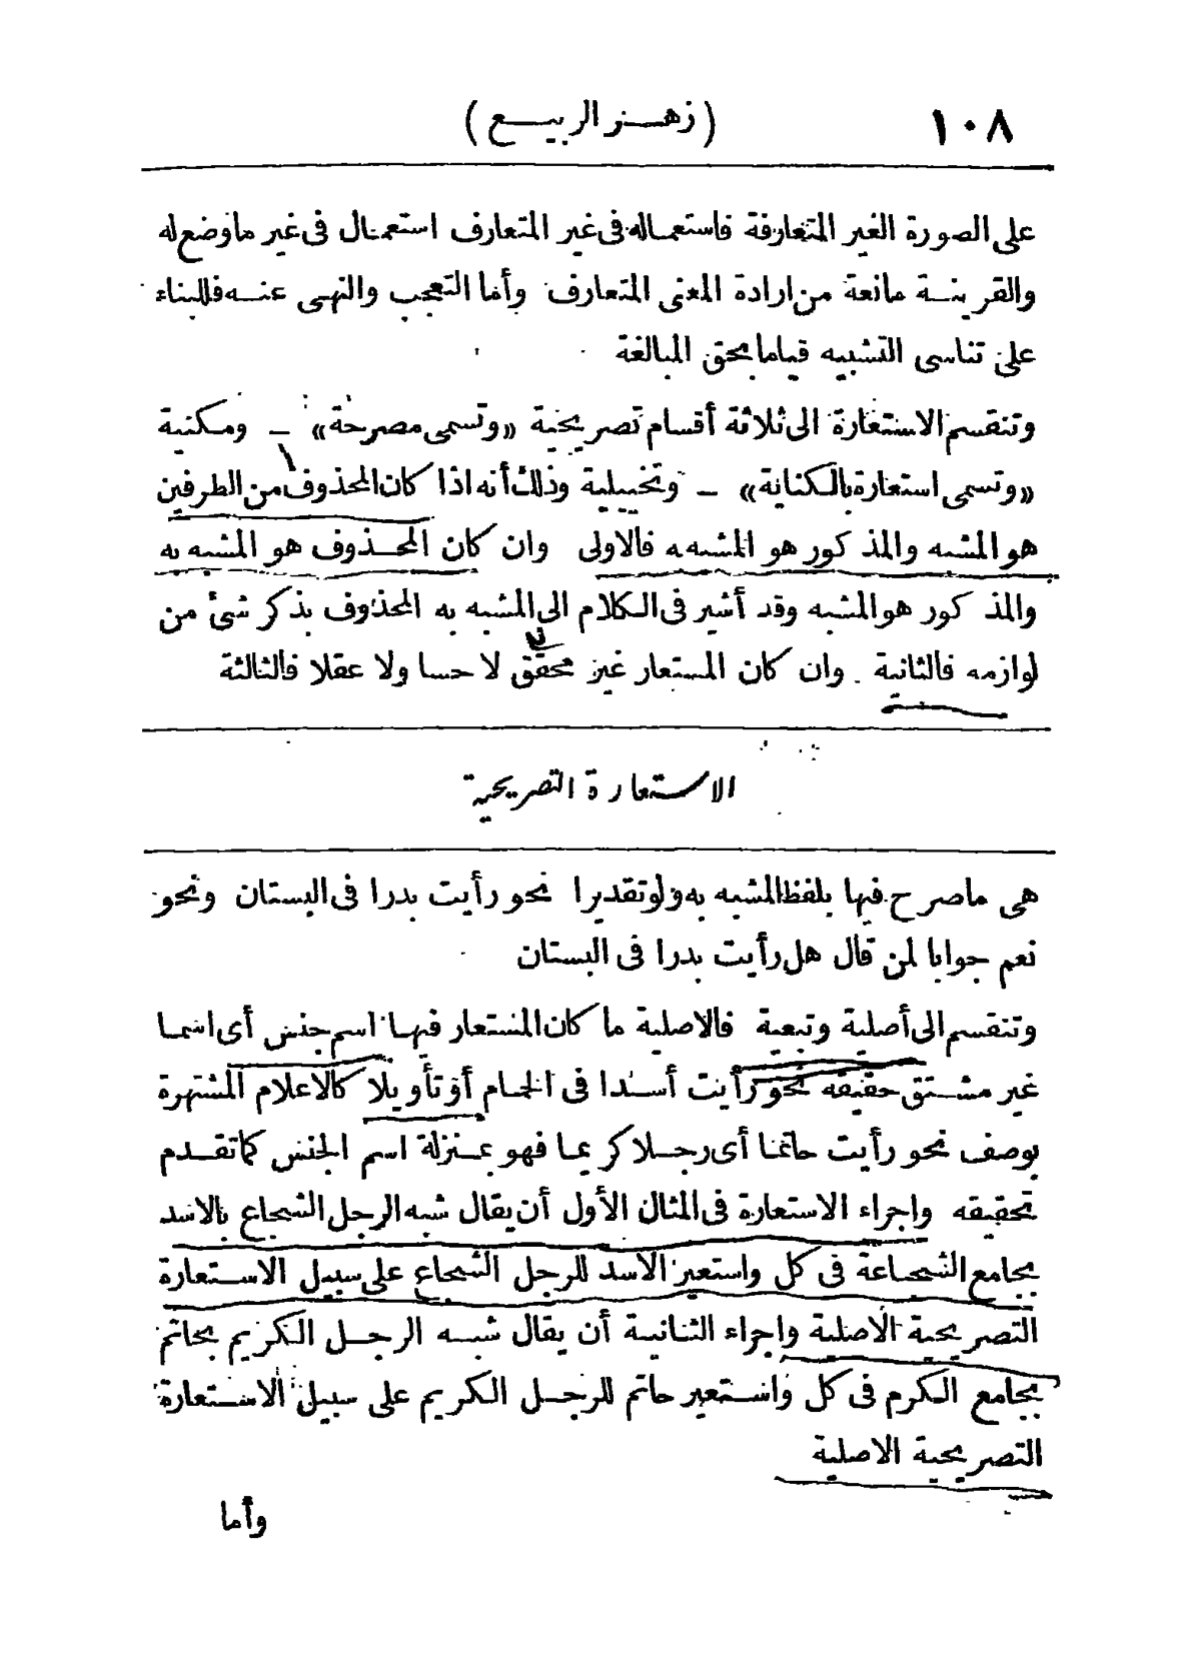 ١٠٨ (زهر الربيع)
على الصورة الغير المتعارفة فاستعماله فى غير المتعارف استعمال فى غير ما وضع له
والقرينة مانعة من ارادة المعنى المتعارف وأما التعجب والنهى عنه فللبناء
على تناسى التشبيه قياما بحق المبالغة
وتنقسم الاستعارة الى ثلاثة أقسام تصريحية «وتسمى مصرحة» – ومكنية
«وتسمى استعارة بالكناية» – وتخييلية وذلك أنه اذا كان المحذوف من الطرفين
هو المشبه والمذكور هو المشبه به فالاولى وان كان المحذوف هو المشبه به
والمذكور هو المشبه وقد أشير فى الكلام الى المشبه به المحذوف بذكر شئ من
لوازمه فالثانية . وان كان المستعار غير محقق لا حسا ولا عقلا فالثالثة
الاستعارة التصريحية
هى ما صرح فيها بلفظ المشبه به ولو تقديرا نحو رأيت بدرا فى البستان ونحو
نعم جوابا لمن قال هل رأيت بدرا فى البستان
وتنقسم الى أصلية وتبعية فالاصلية ما كان المستعار فيها اسم جنس أى اسما
غير مشتق حقيقه نحو رأيت أسدا فى الحمام أو تأويلا كالاعلام المشتهرة
بوصف نحو رأيت حاتما أى رجلا كريما فهو بمنزلة اسم الجنس كما تقدم
تحقيقه واجراء الاستعارة فى المثال الأول أن يقال شبه الرجل الشجاع بالاسد
بجامع الشجاعة فى كل واستعير الاسد للرجل الشجاع على سبيل الاستعارة
التصريحية الاصلية واجراء الثانية أن يقال شبه الرجل الكريم بحاتم
بجامع الكرم فى كل واستعير حاتم للرجل الكريم على سبيل الاستعارة
التصريحية الاصلية
وأما